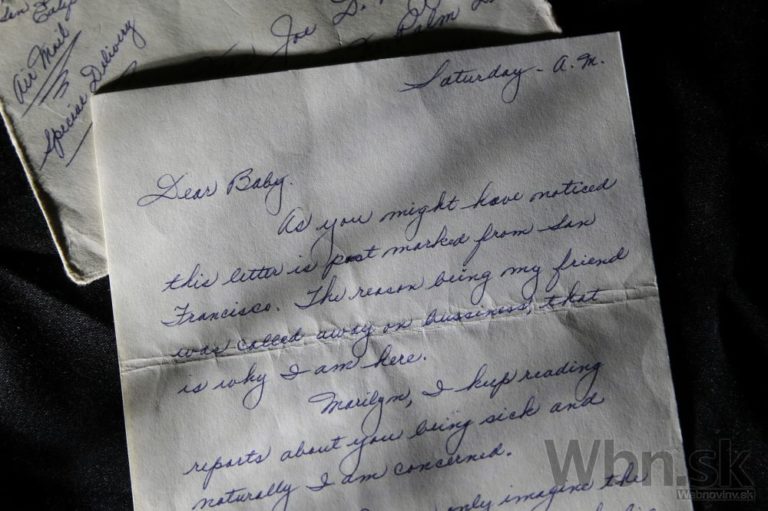 Air Mail
Special Delivery
Joe D.
Palm
Saturday - A.M.
Dear Baby.
As you might have noticed
this letter is post marked from San
Francisco. The reason being my friend
was called away on bussiness, that
is why I am here.
Marilyn, I keep reading
reports about you being sick and
naturally I am concerned.
only imagine the
Wbn.sk
Webnoviny.sk